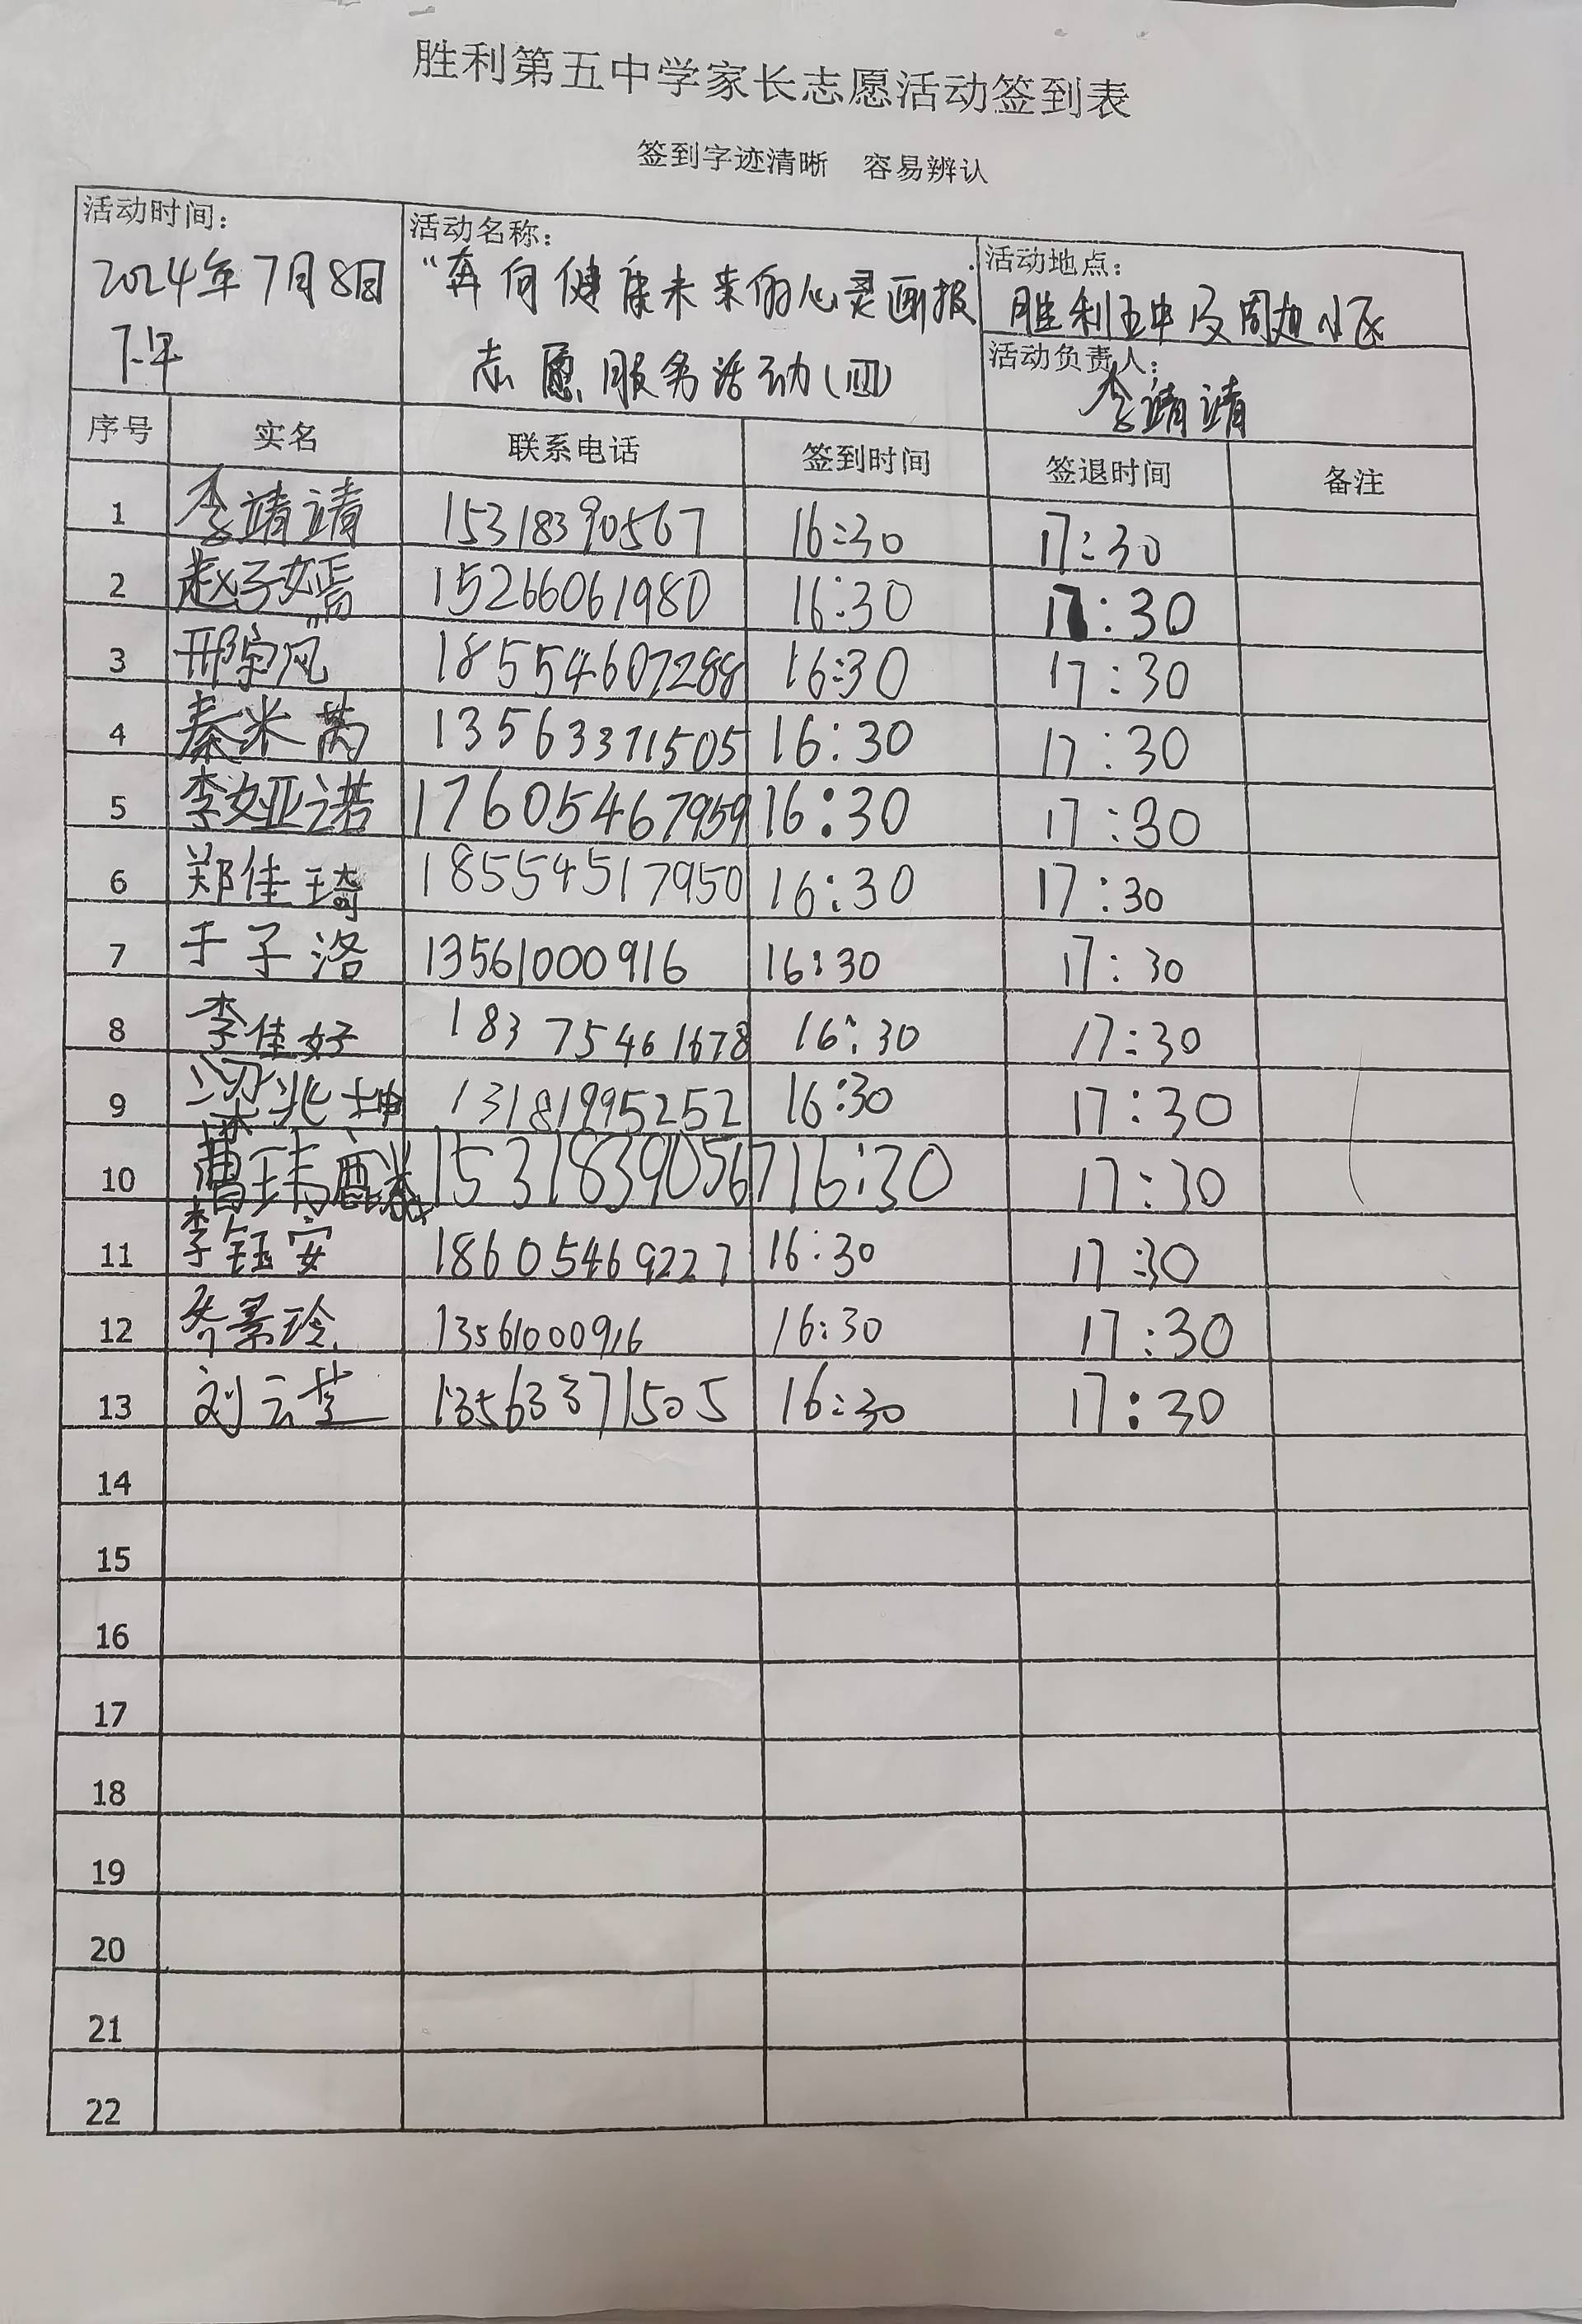 胜利第五中学家长志愿活动签到表
签到字迹清晰 容易辨认
活动时间：
2024年7月8日
下午
活动名称：
“奔向健康未来的心灵画报
志愿服务活动(四)
活动地点：
胜利五中及周边小区
活动负责人：
李靖靖
序号 实名 联系电话 签到时间 签退时间 备注
1 李靖靖 15318390567 16:30 17:30
2 赵子嫣 15266061980 16:30 17:30
3 邢 风 18554607288 16:30 17:30
4 秦米 13563371505 16:30 17:30
5 李娅诺 17605467959 16:30 17:30
6 郑佳琦 18554517950 16:30 17:30
7 于子洛 13561000916 16:30 17:30
8 李佳好 18375461678 16:30 17:30
9 梁兆坤 13181995252 16:30 17:30
10 曹玮 15318390567 16:30 17:30
11 李钰安 18605469227 16:30 17:30
12 景玲 13561000916 16:30 17:30
13 刘云 13563371505 16:30 17:30
14
15
16
17
18
19
20
21
22